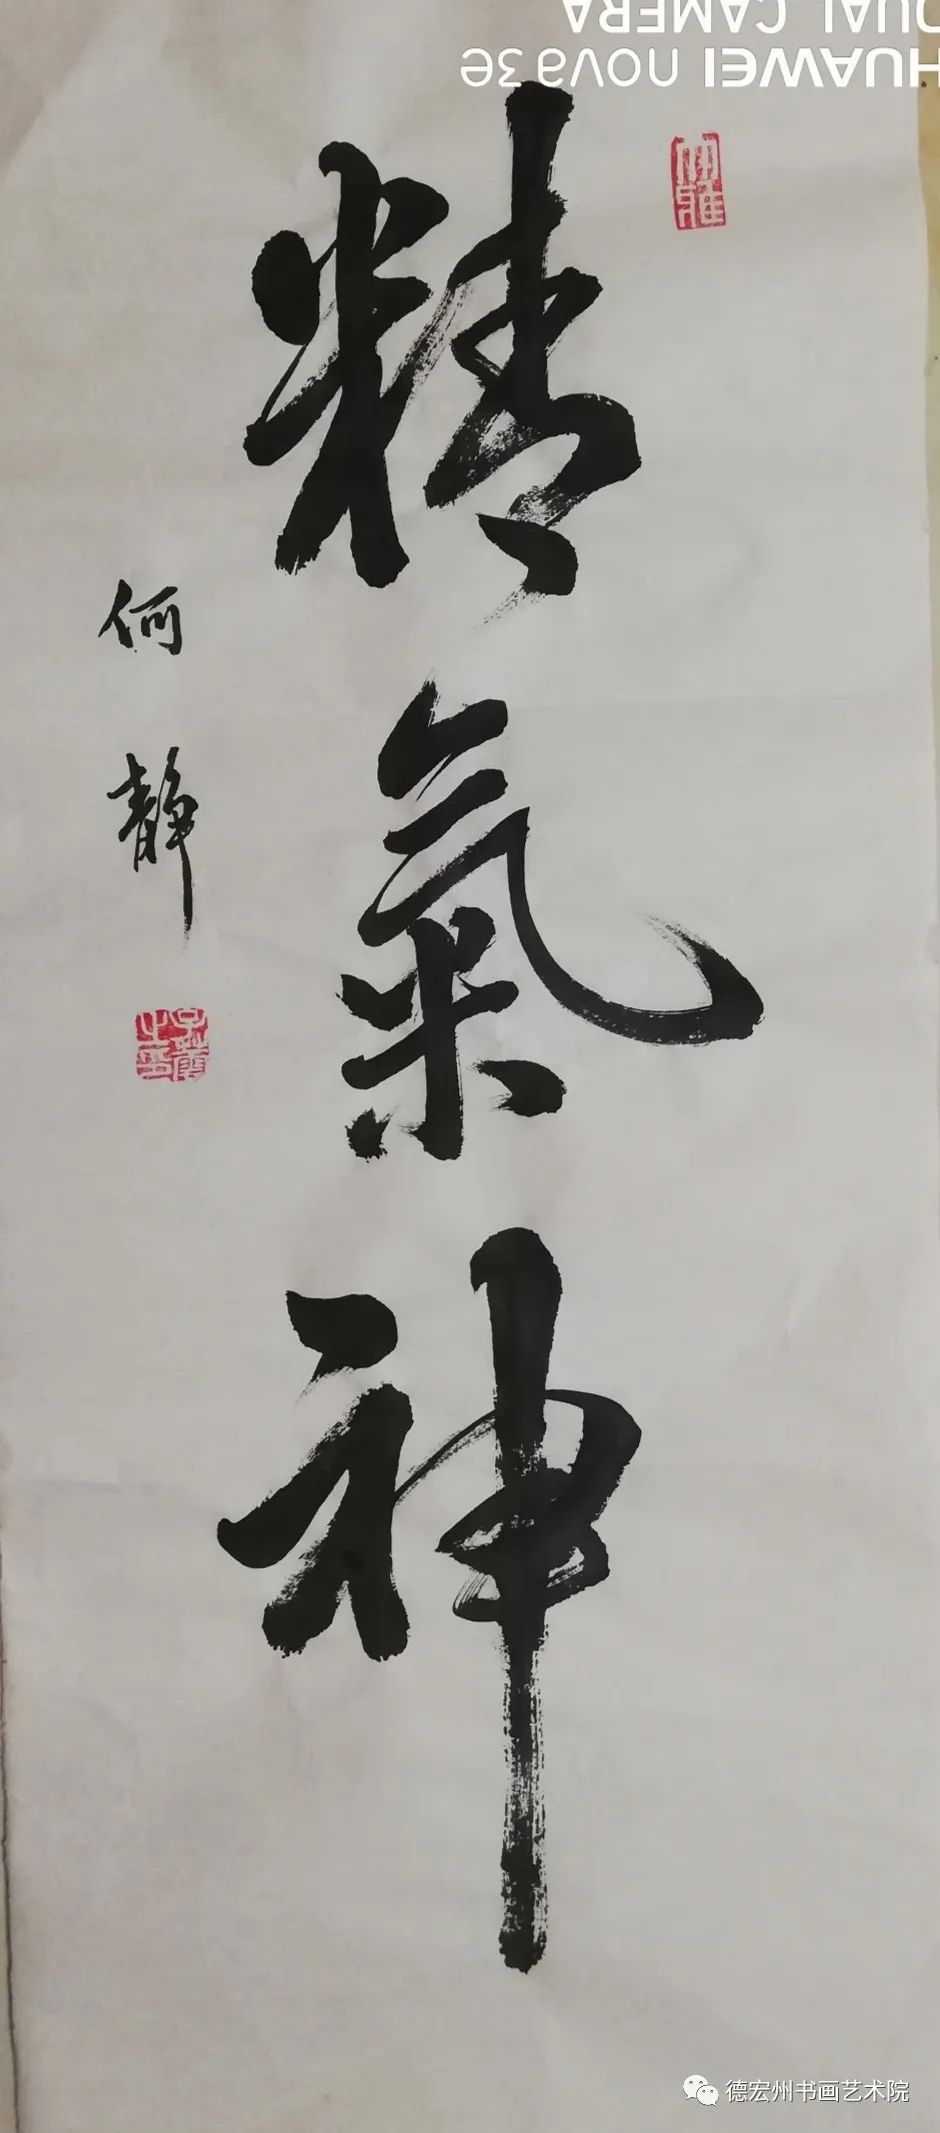 HUAWEI nova 3e
DUAL CAMERA
精氣神
何靜
德宏州书画艺术院